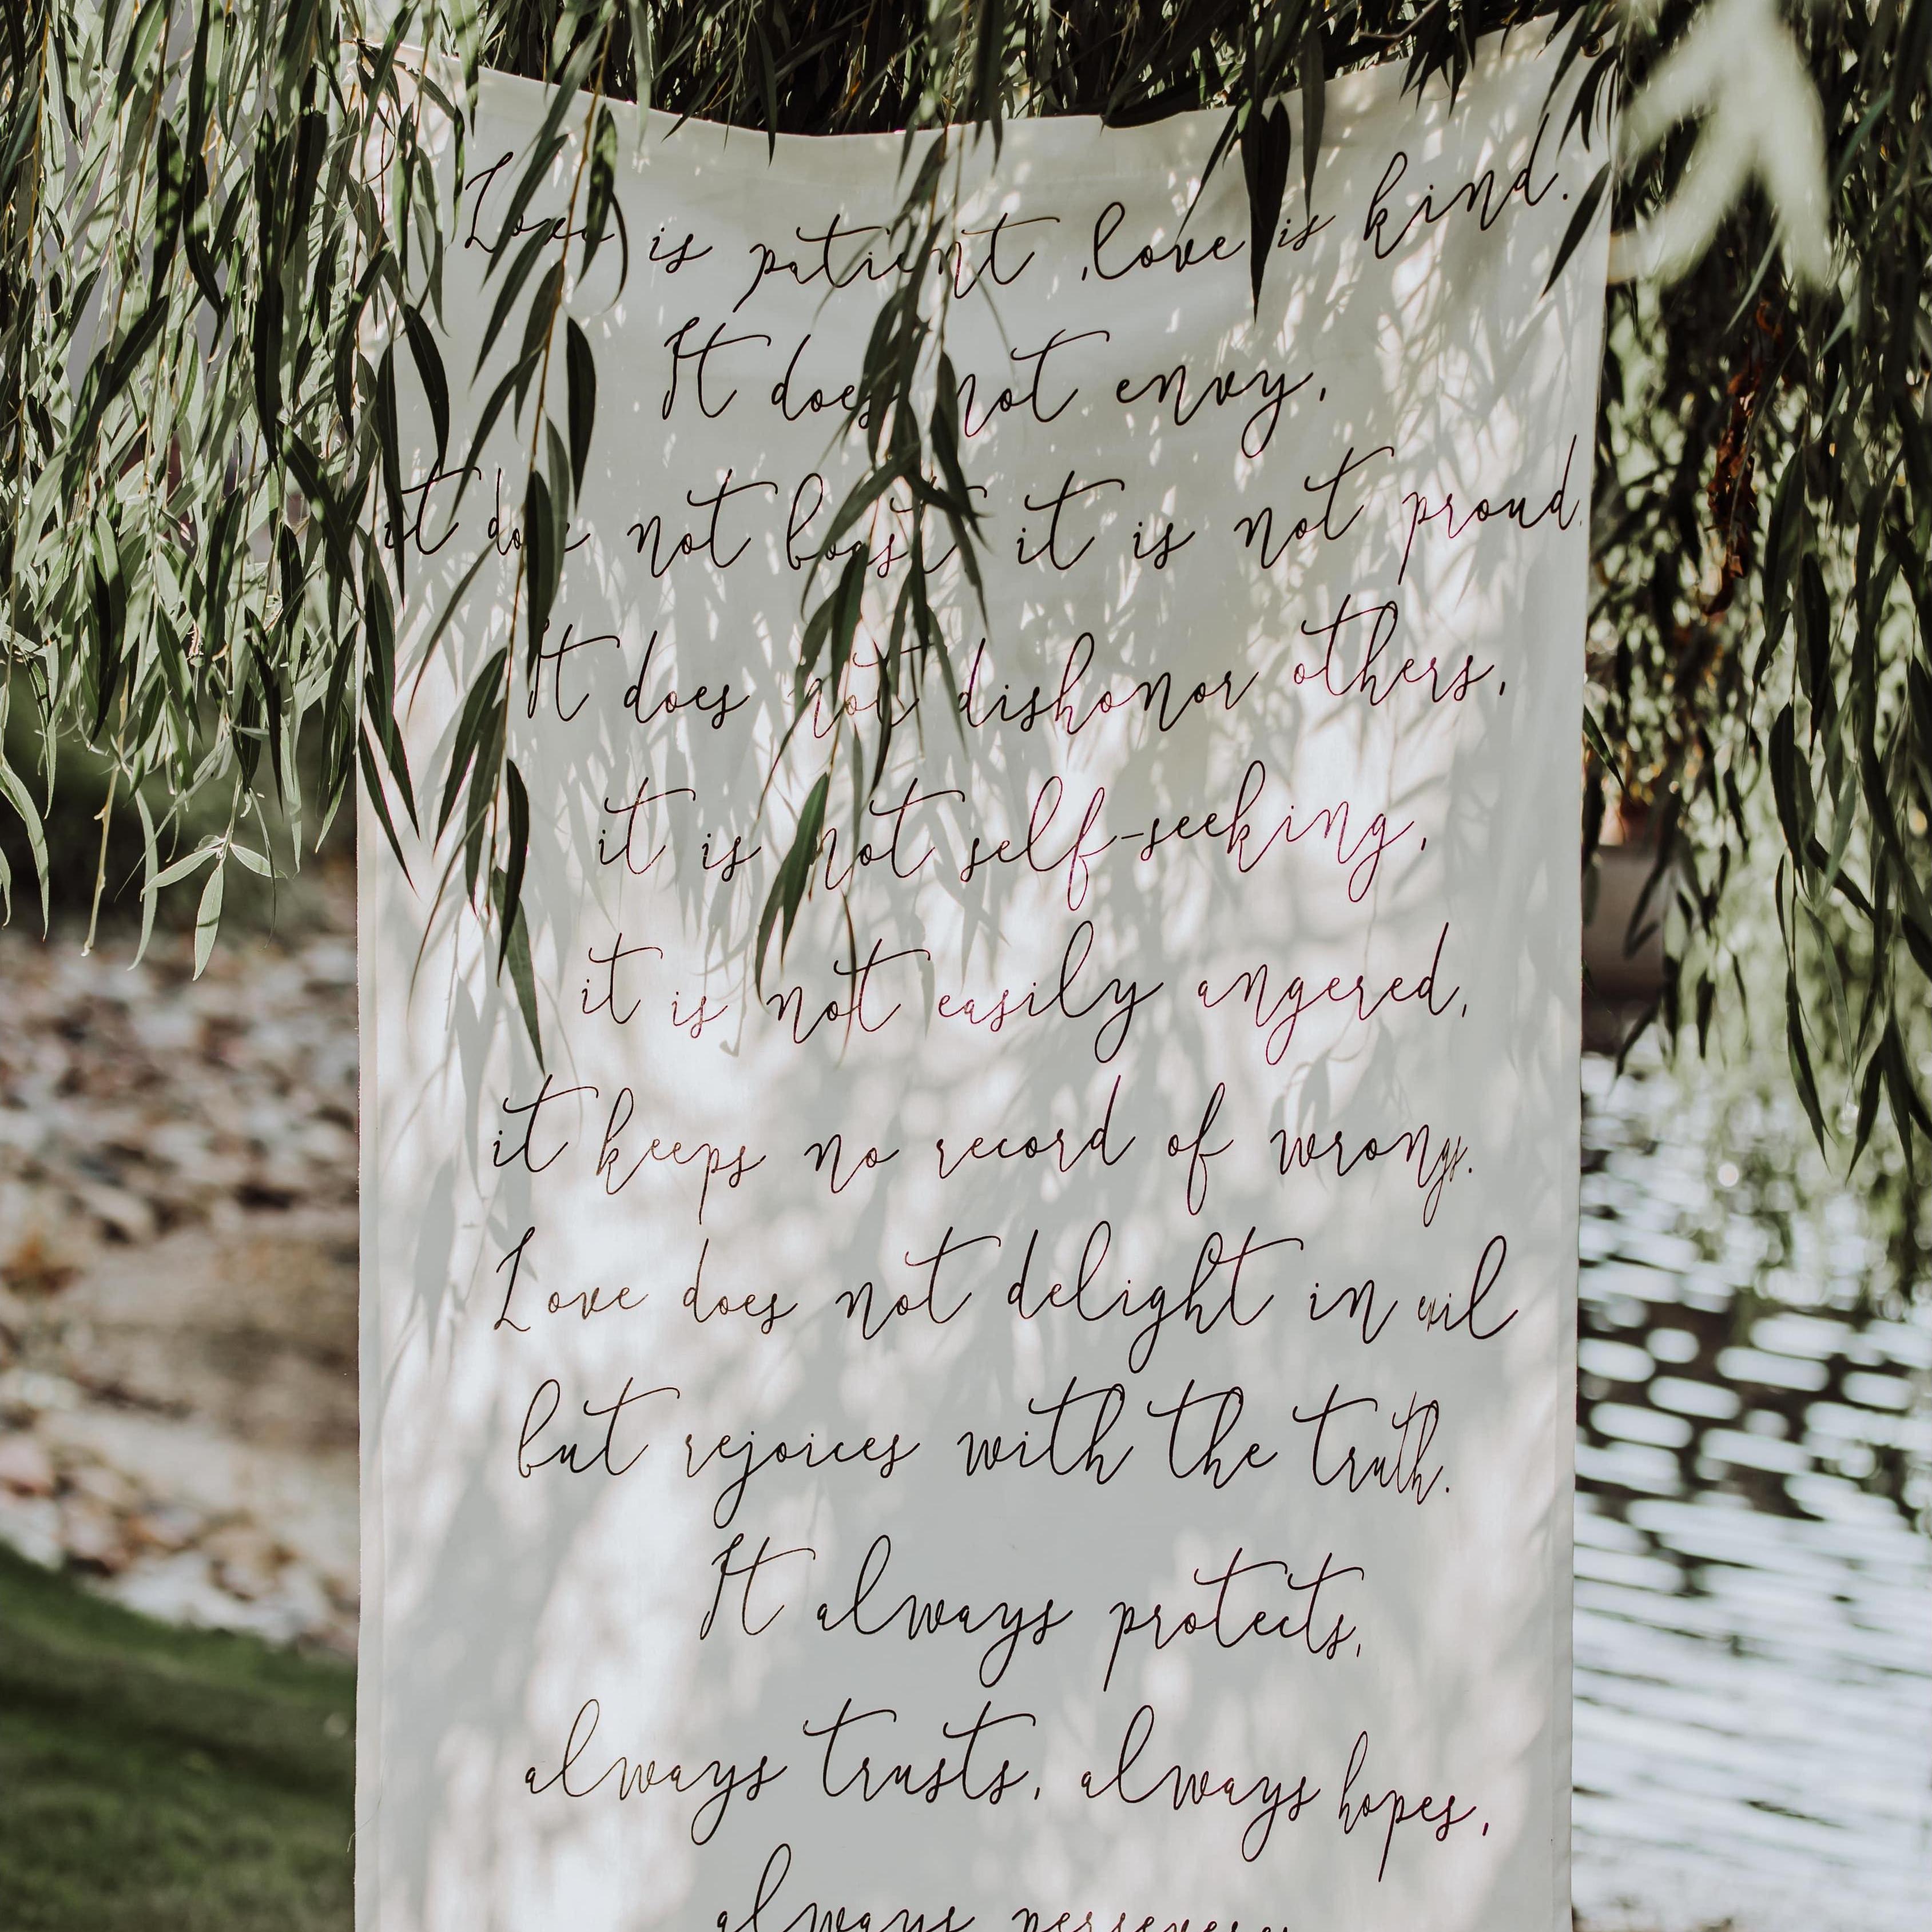 Love is patient, love is kind.
It does not envy,
it does not boast it is not proud.
It does not dishonor others,
it is not self-seeking,
it is not easily angered,
it keeps no record of wrongs.
Love does not delight in evil
but rejoices with the truth.
It always protects,
always trusts, always hopes,
always perseveres